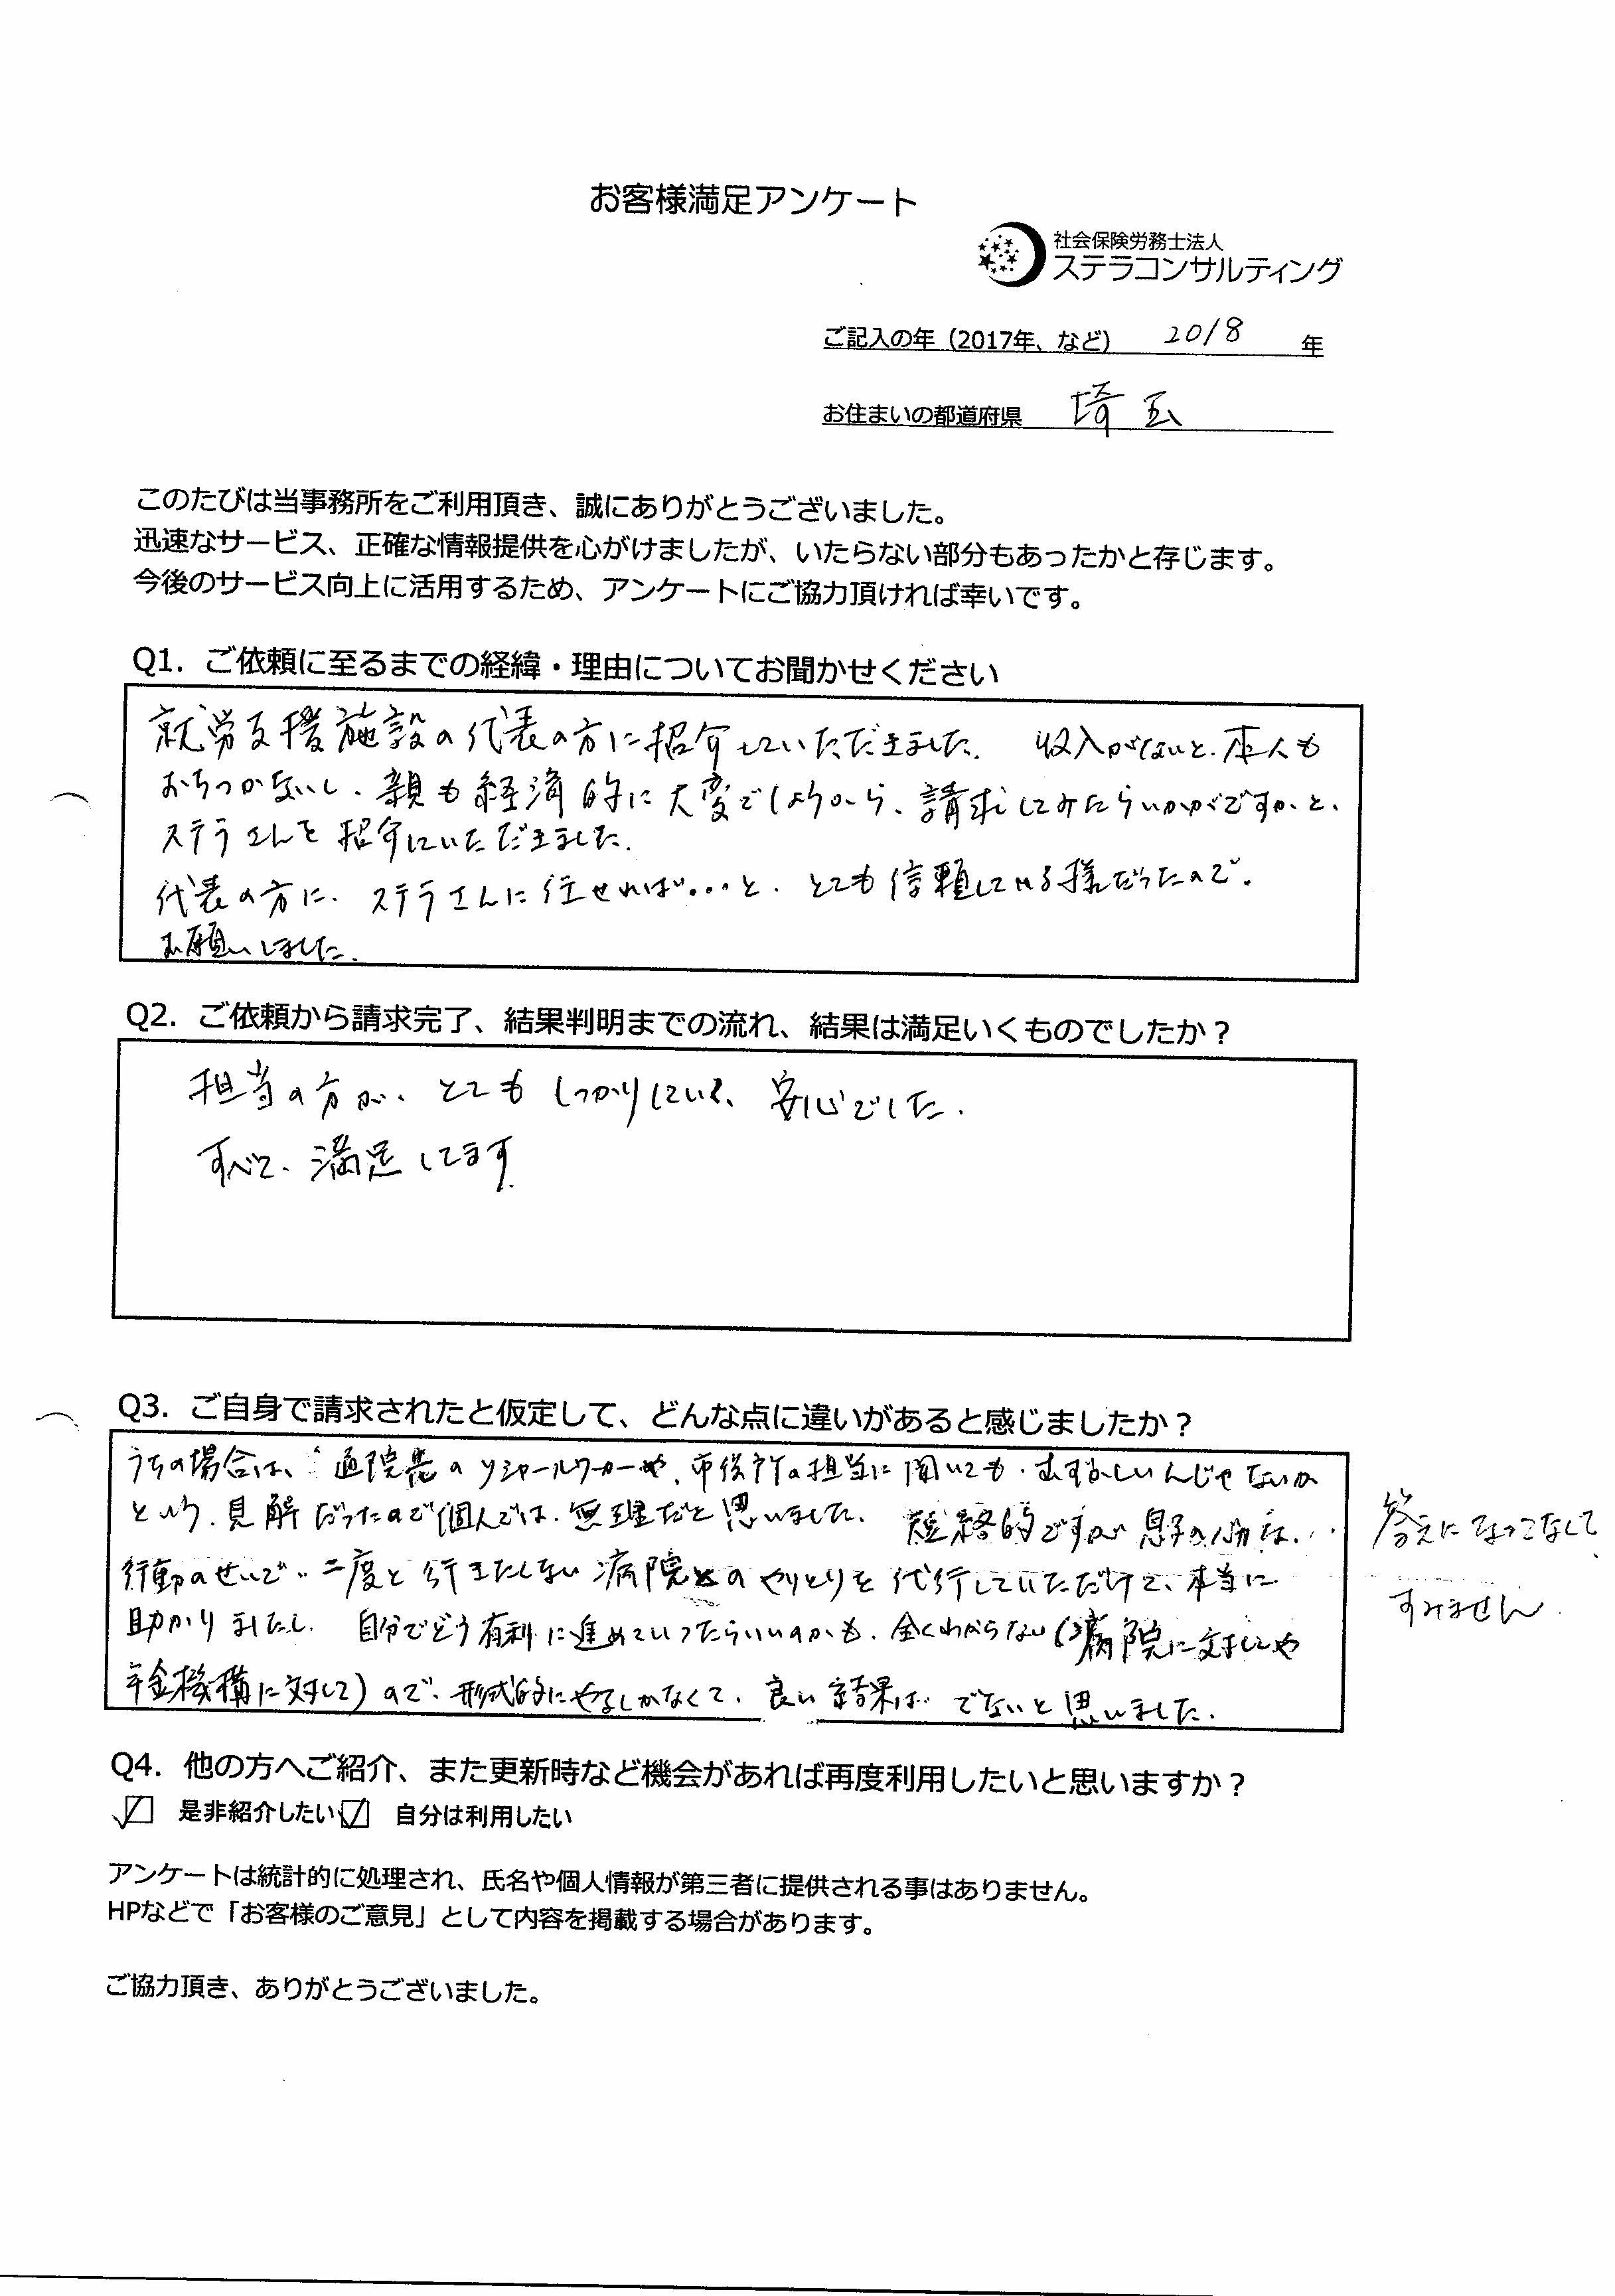 お客様満足アンケート
社会保険労務士法人
ステラコンサルティング
ご記入の年（2017年、など） 2018 年
お住まいの都道府県 埼玉
このたびは当事務所をご利用頂き、誠にありがとうございました。
迅速なサービス、正確な情報提供を心がけましたが、いたらない部分もあったかと存じます。
今後のサービス向上に活用するため、アンケートにご協力頂ければ幸いです。
Q1. ご依頼に至るまでの経緯・理由についてお聞かせください
就労支援施設の代表の方に紹介していただきました。 収入がないと、本人も
おちつかないし、親も経済的に大変でしょうから、請求してみたらいかがですか、と、
ステラさんを紹介していただきました。
代表の方に、ステラさんに任せれば…と、とても信頼している様だったので、
お願いしました。
Q2. ご依頼から請求完了、結果判明までの流れ、結果は満足いくものでしたか？
担当の方が、とてもしっかりしていて、安心でした。
すべて、満足してます。
Q3. ご自身で請求されたと仮定して、どんな点に違いがあると感じましたか？
うちの場合は、通院先のソシャールワーカーや、市役所の担当に聞いても、むずかしいんじゃないか
という、見解だったので個人では、無理だと思いました。 短絡的ですが 息子の
答えになってなくて
行動のせいで…二度と行きたくない病院とのやりとりを代行していただけて、本当に
すみません
助かりましたし、 自分でどう有利に進めていったらいいのかも、全くわからない（病院に対してや
年金機構に対して）ので、形式的にやるしかなくて、良い結果は でないと思いました。
Q4. 他の方へご紹介、また更新時など機会があれば再度利用したいと思いますか？
☑ 是非紹介したい ☑ 自分は利用したい
アンケートは統計的に処理され、氏名や個人情報が第三者に提供される事はありません。
HPなどで「お客様のご意見」として内容を掲載する場合があります。
ご協力頂き、ありがとうございました。